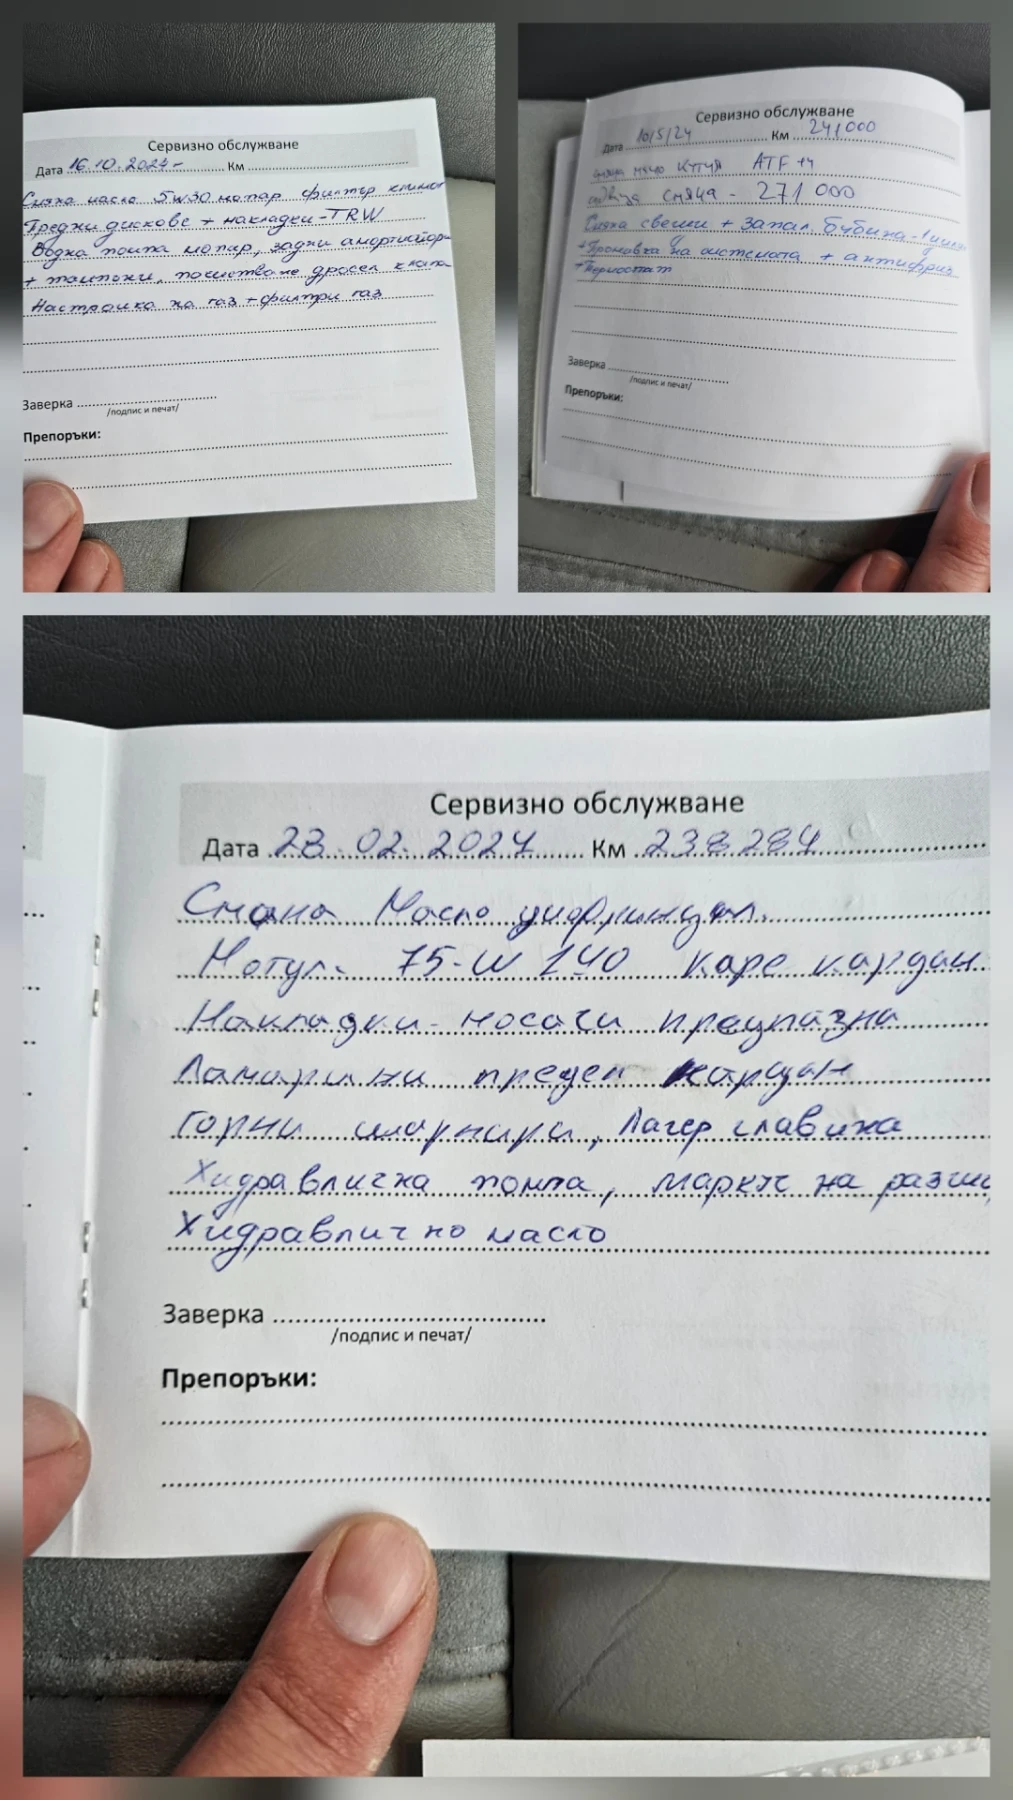 Сервизно обслужване
Дата 16.10.2024- Км
Смяна масло 5w30 мопар филтър климат
Предни дискове + накладки-TRW
Водна помпа мопар, задни амортисьори
+ тампони, почистване дросел клапа
Настройка на газ + филтри газ
Заверка
/подпис и печат/
Препоръки:
Сервизно обслужване
Дата 10/5/24 Км 241000
смяна масло КПЧЯ ATF +4
смяна - 271 000
Смяна свещи + запал. бубина-
+Промивка на системата + антифриз
+Термостат
Заверка
/подпис и печат/
Препоръки:
Сервизно обслужване
Дата 23.02.2024 Км 238284
Смяна Масло
Мотул. 75-W 140 каре кардан
Накладки-носачи предпазна
Ламарини преден кардан
Горни шарнири, Лагер главина
Хидравлична помпа, маркуч на
Хидравлично масло
Заверка
/подпис и печат/
Препоръки: